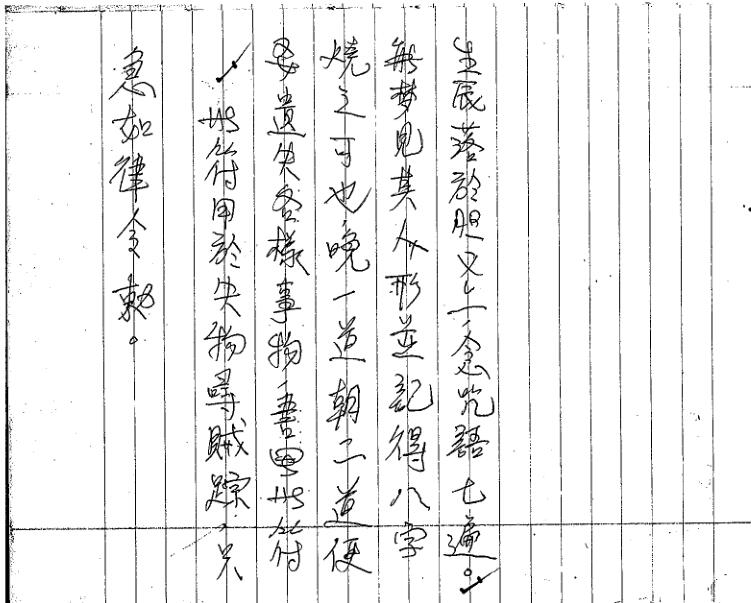 急如律令敕。
此符用於失物尋賊踪,只
要遺失各樣事物,書此符
燒之可也,晚一道朝二道便
能夢見其人形並記得八字
生辰落於胆念咒語七遍。